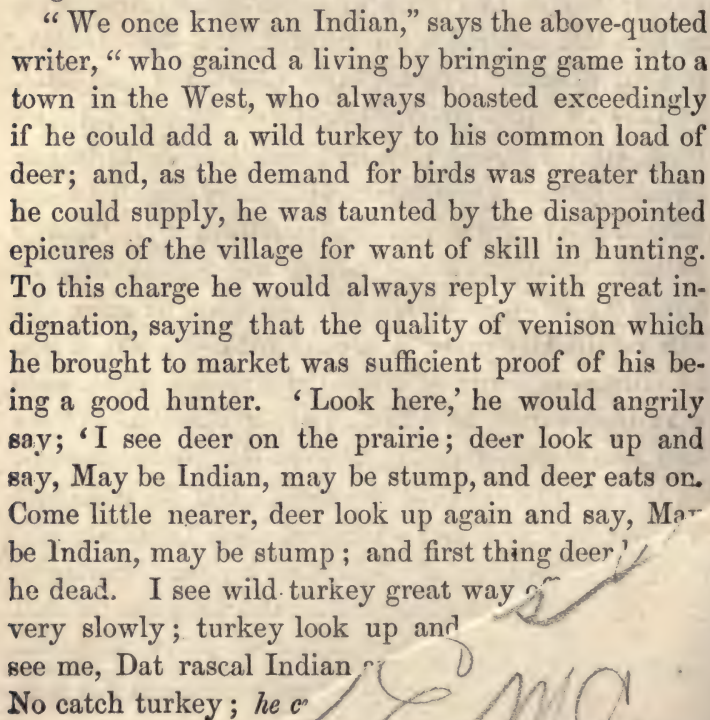 “ We once knew an Indian,” says the above-quoted
writer, “ who gained a living by bringing game into a
town in the West, who always boasted exceedingly
if he could add a wild turkey to his common load of
deer; and, as the demand for birds was greater than
he could supply, he was taunted by the disappointed
epicures of the village for want of skill in hunting.
To this charge he would always reply with great in-
dignation, saying that the quality of venison which
he brought to market was sufficient proof of his be-
ing a good hunter. ‘ Look here,’ he would angrily
say; ‘ I see deer on the prairie; deer look up and
say, May be Indian, may be stump, and deer eats on.
Come little nearer, deer look up again and say,
be Indian, may be stump; and first thing deer
he dead. I see wild turkey great way
very slowly; turkey look up and
see me, Dat rascal Indian
No catch turkey; he